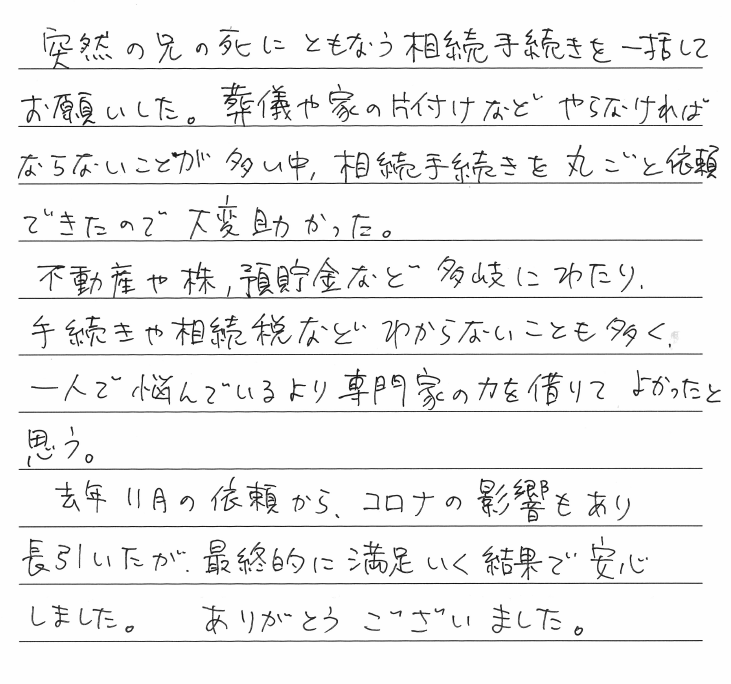 突然の兄の死にともなう相続手続きを一括して
お願いした。葬儀や家の片付けなど やらなければ
ならないことが多い中, 相続手続きを丸ごと依頼
できたので 大変助かった。
不動産や株, 預貯金など 多岐にわたり、
手続きや相続税など わからないことも多く、
一人で悩んでいるより専門家の力を借りて よかったと
思う。
去年11月の依頼から、コロナの影響もあり
長引いたが、最終的に満足いく結果で安心
しました。 ありがとうございました。